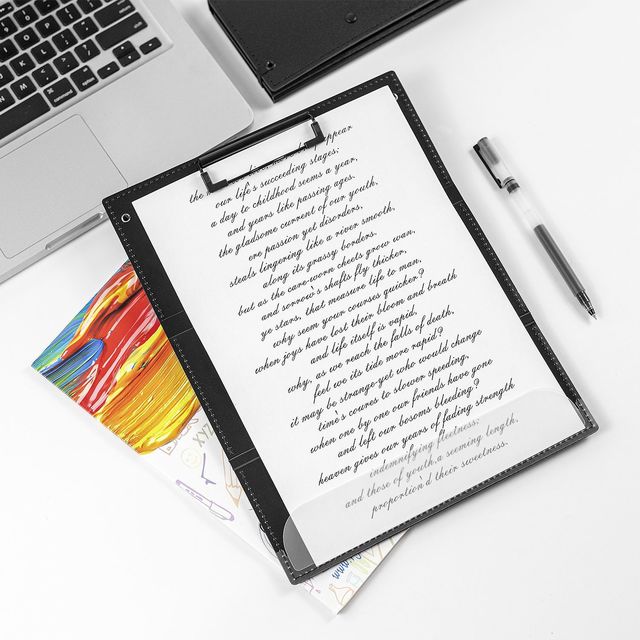 appear
our life's succeeding stages;
a day to childhood seems a year,
and years like passing ages.
the gladsome current of our youth,
ere passion yet disorders,
steals lingoring like a river smooth,
along its grassy borders.
but as the care-worn cheets grow wan,
and sorrow's shafts fly thicker,
ye stars, that measure life to man,
why seem your courses quicker?
when joys have lost their bloom and breath
and life itself is vapid,
why, as we reach the falls of death,
feel we its tide more rapid!?
it may be strange-yet who would change
time's coures to slower speeding,
when one by one our friends have gone
and left our bosoms bleeding?
heaven gives our years of fading strength
indemnifying fleetness;
and those of youth,a seeming length,
proportion'd their sweetness.
XYZ